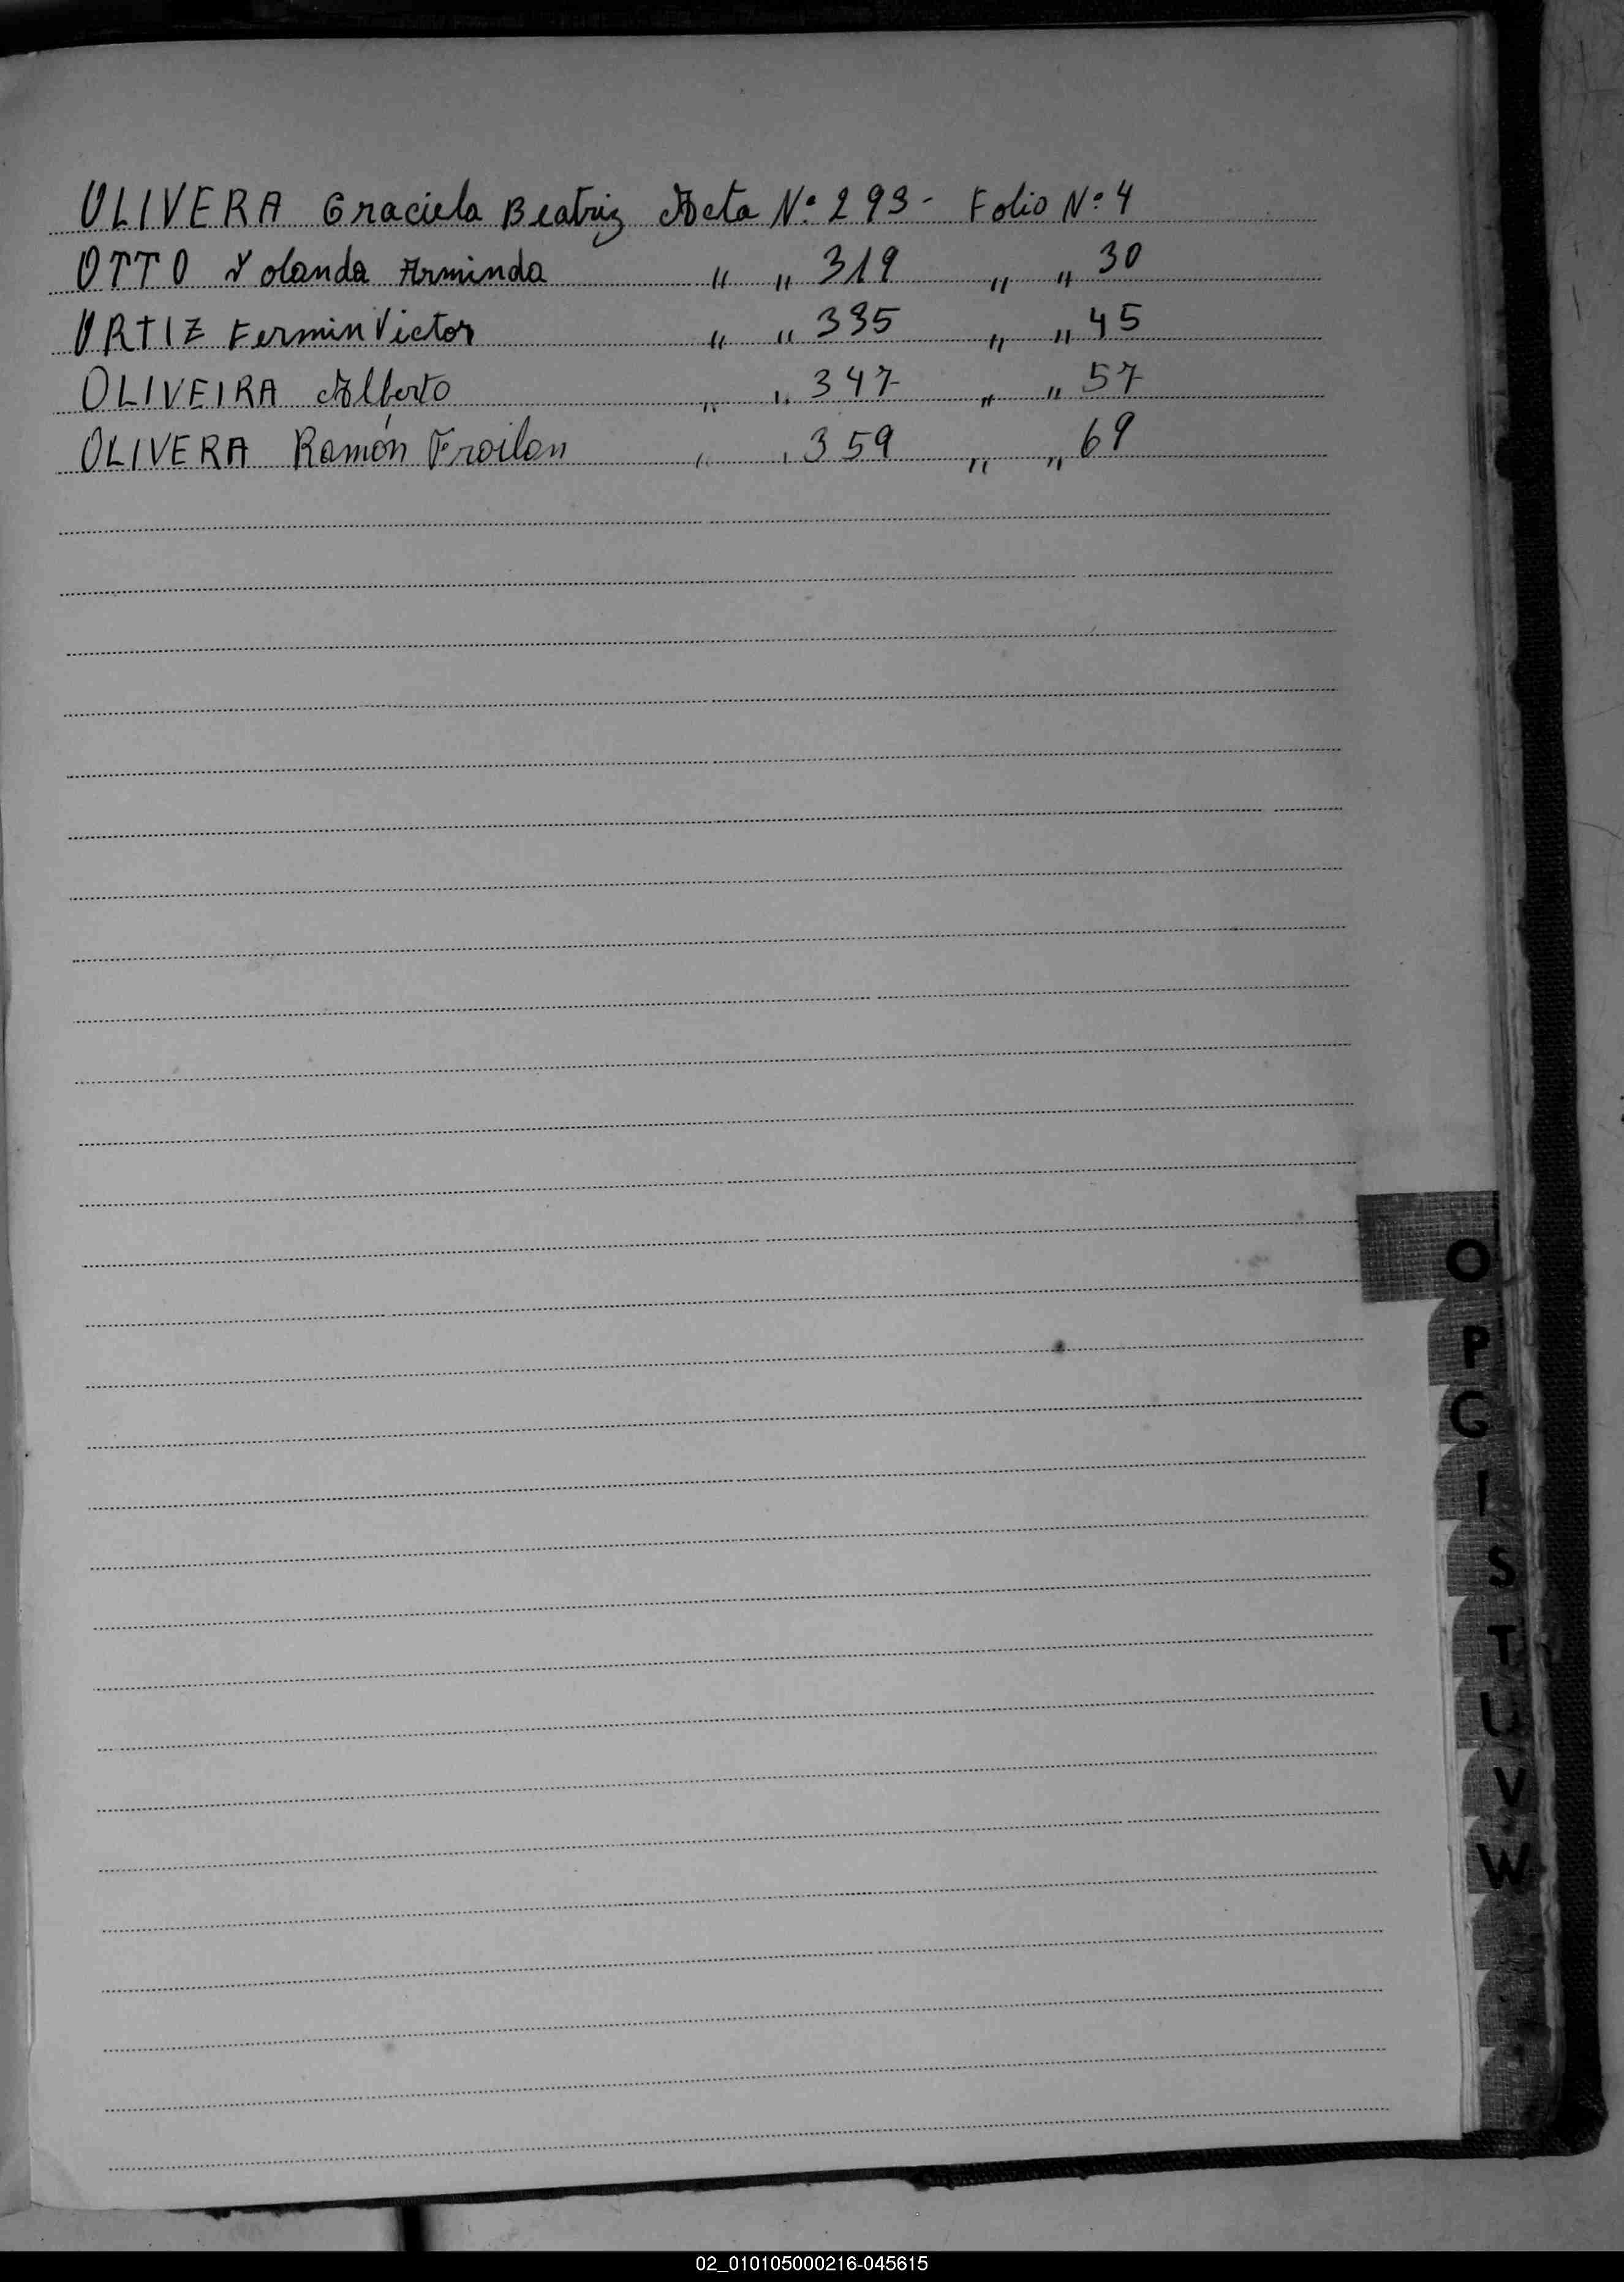 OLIVERA Graciela Beatriz Acta N° 293 - Folio N° 4
OTTO Yolanda Arminda " " 319 " " 30
ORTIZ Fermin Victor " " 335 " " 45
OLIVEIRA Alberto " " 347 " " 57
OLIVERA Ramón Froilan " " 359 " " 69
O
P
G
I
S
T
U
V
W
02_010105000216-045615